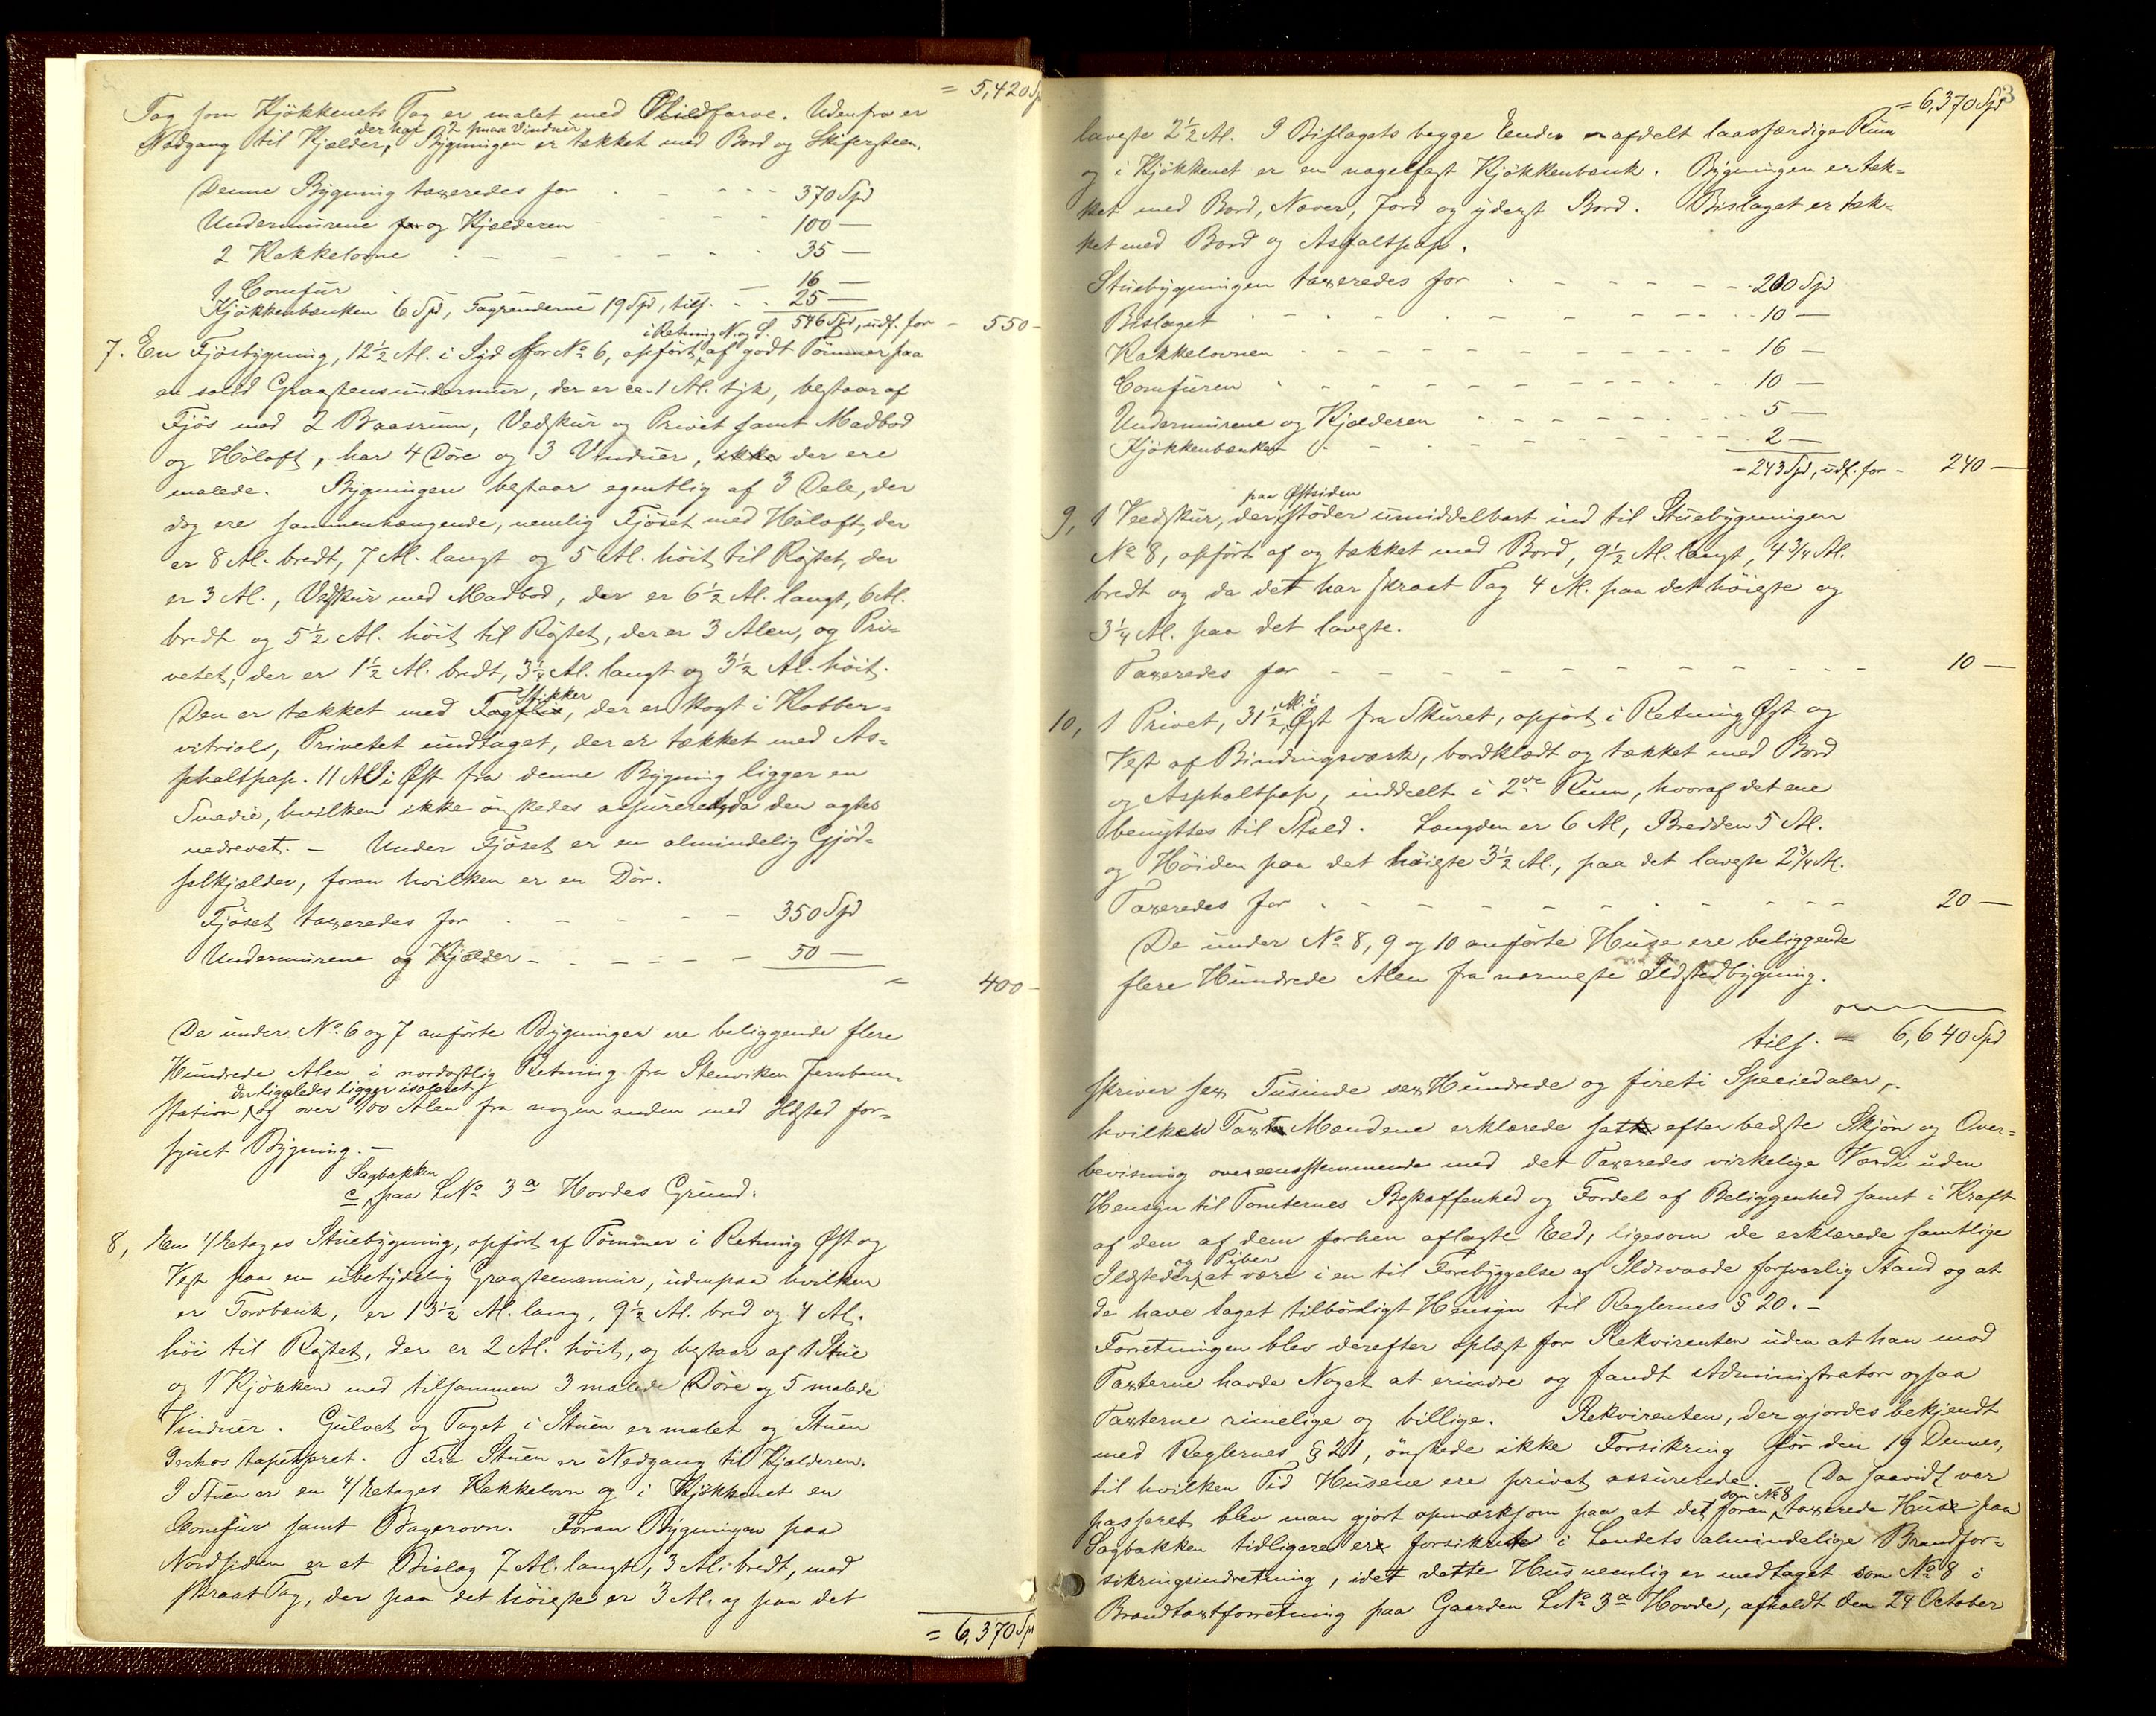 = 5,420 Spd
Tag som Kjøkkenets Tag er malet med Oliefarve. Udenfra er
der har 2 smaa Vinduer
Nedgang til Kjælder, Bygningen er tækket med Bord og Skifersteen.
Denne Bygning taxeredes for - - - - 370 Spd
Undermurene og Kjælderen - - - 100 —
2 Kakkelovne - - - - - 35 —
1 Comfur - - 16 —
Kjøkkenbænken 6 Spd, Tagrenderne 19 Spd, tils. - - 25 —
546 Spd, udf. for - 550 -
i Retning N. og S.
7. En Fjøsbygning, 12½ Al. i Syd for No 6, opført af godt Tømmer paa
en solid Graasteensundermur, der er ca. 1 Al. tyk, bestaar af
Fjøs med 2 Baasrum, Vedskur og Privet samt Madbod
og Høloft, har 4 Døre og 3 Vinduer, der ere
malede. Bygningen bestaar egentlig af 3 Dele, der
dog ere sammenhængende, nemlig Fjøset med Høloft, der
er 8 Al. bredt, 7 Al. langt og 5 Al. høit til Røstet, der
er 3 Al., Vedskur med Madbod, der er 6½ Al. langt, 6 Al.
bredt og 5½ Al. høit til Røstet, der er 3 Alen, og Pri-
vetet, der er 1½ Al. bredt, 3¼ Al. langt og 3½ Al. høit.
Stikker
Den er tækket med Tagflis, der er kogt i Kobber-
vitriol, Privetet undtaget, der er tækket med As-
phaltpap. 11 Al. i Øst fra denne Bygning ligger en
Smedie, hvilken ikke ønskedes assureret, da den agtes
nedrevet. — Under Fjøset er en almindelig Gjød-
selkjælder, foran hvilken er en Dør.
Fjøset taxeredes for - - - - - 350 Spd
Undermurene og Kjælder - - - - - 50 —
= 400 -
De under No 6 og 7 anførte Bygninger ere beliggende flere
Hundrede Alen i nordøstlig Retning fra Stenviken Jernbane-
der ligeledes ligger isoleret
station, og over 100 Alen fra nogen anden med Ildsted for-
synet Bygning. —
Sagbakken
c, paa LNo 3a Hovdes Grund.
8, En 1/Etages Stuebygning, opført af Tømmer i Retning Øst og
Vest paa en ubetydelig Graasteensmur, udenpaa hvilken
er Torvbænk, er 13½ Al. lang, 9½ Al. bred og 4 Al.
høi til Røstet, der er 2 Al. høit, og bestaar af 1 Stue
og 1 Kjøkken med tilsammen 3 malede Døre og 5 malede
Vinduer. Gulvet og Taget i Stuen er malet og Stuen
derhos tapetseret. Fra Stuen er Nedgang til Kjælderen.
I Stuen er en 4/Etages Kakkelovn og i Kjøkkenet en
Comfur samt Bagerovn. Foran Bygningen paa
Nordsiden er et Bislag 7 Al. langt, 3 Al. bredt, med
skraat Tag, der paa det høieste er 3 Al. og paa det
= 6,370 Spd
= 6,370 Spd
laveste 2½ Al. I Bislagets begge Ender er afdelt laasfærdige Rum
og i Kjøkkenet er en nagelfast Kjøkkenbænk. Bygningen er tæk-
ket med Bord, Næver, Jord og yderst Bord. Bislaget er tæk-
ket med Bord og Asfaltpap.
Stuebygningen taxeredes for - - - - - - 200 Spd
Bislaget - - - - - - - - 10 —
Kakkelovnen - - - - - - - - 16 —
Comfuren - - - - - - - - 10 —
Undermurene og Kjælderen - - - - - 5 —
Kjøkkenbænken - - - - - - - 2 —
= 243 Spd, udf. for - 240 —
paa Østsiden
9, 1 Vedskur, der støder umiddelbart ind til Stuebygningen
No 8, opført af og tækket med Bord, 9½ Al. langt, 4¾ Al.
bredt og da det har skraat Tag 4 Al. paa det høieste og
3¼ Al. paa det laveste.
Taxeredes for - - - - - - - - - 10 —
Al. i
10, 1 Privet, 31½ Øst fra Skuret, opført i Retning Øst og
Vest af Bindingsværk, bordklædt og tækket med Bord
og Asphaltpap, inddeelt i 2de Rum, hvoraf det ene
benyttes til Stald. Længden er 6 Al, Bredden 5 Al.
og Høiden paa det høieste 3½ Al., paa det laveste 2¾ Al.
Taxeredes for - - - - - - - - - 20 —
De under No 8, 9 og 10 anførte Huse ere beliggende
flere Hundrede Alen fra nærmeste Ildstedbygning.
tils. = 6,640 Spd
skriver sex Tusinde sex Hundrede og fireti Speciedaler,
hvilken Taxt Mændene erklærede sat efter bedste Skjøn og Over-
bevisning overeensstemmende med det Taxeredes virkelige Værdi uden
Hensyn til Tomternes Beskaffenhed og Fordel af Beliggenhed samt i Kraft
af den af dem forhen aflagte Eed, ligesom de erklærede samtlige
og Piber
Ildsteder at være i en til Forebyggelse af Ildsvaade forsvarlig Stand og at
de have taget tilbørligt Hensyn til Reglernes § 20. —
Forretningen blev derefter oplæst for Rekvirenten uden at han mod
Taxterne havde Noget at erindre og fandt Administrator ogsaa
Taxterne rimelige og billige. Rekvirenten, der gjordes bekjendt
med Reglernes § 21, ønskede ikke Forsikring før den 19 Dennes,
til hvilken Tid Husene ere privat assurerede. — Da saavidt var
som No 8
passeret blev man gjort opmærksom paa at det foran taxerede Hus paa
Sagbakken tidligere er forsikret i Landets almindelige Brandfor-
sikringsindretning, idet dette Hus nemlig er medtaget som No 8 i
Brandtaxtforretning paa Gaarden LNo 3a Hovde, afholdt den 24 October